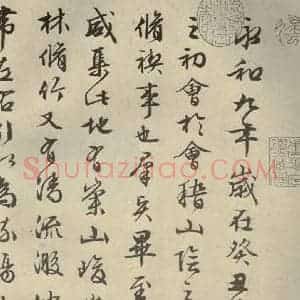 永和九年歲在癸丑
之初會於會稽山陰之
脩禊事也羣賢畢至
咸集此地有崇山峻
林脩竹又有清流激
帶左右引以為流觴
Shufazidao.com